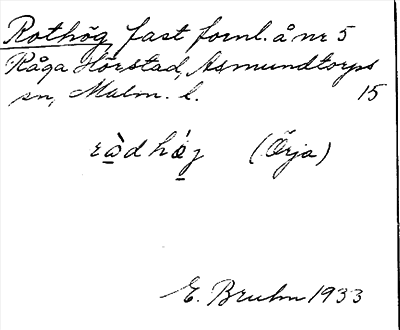 Rothög, fast fornl. å nr 5
Råga Hörstad, Asmundtorps
sn, Malm. l. 15
ràdhǿg (Örja)
E. Bruhn 1933